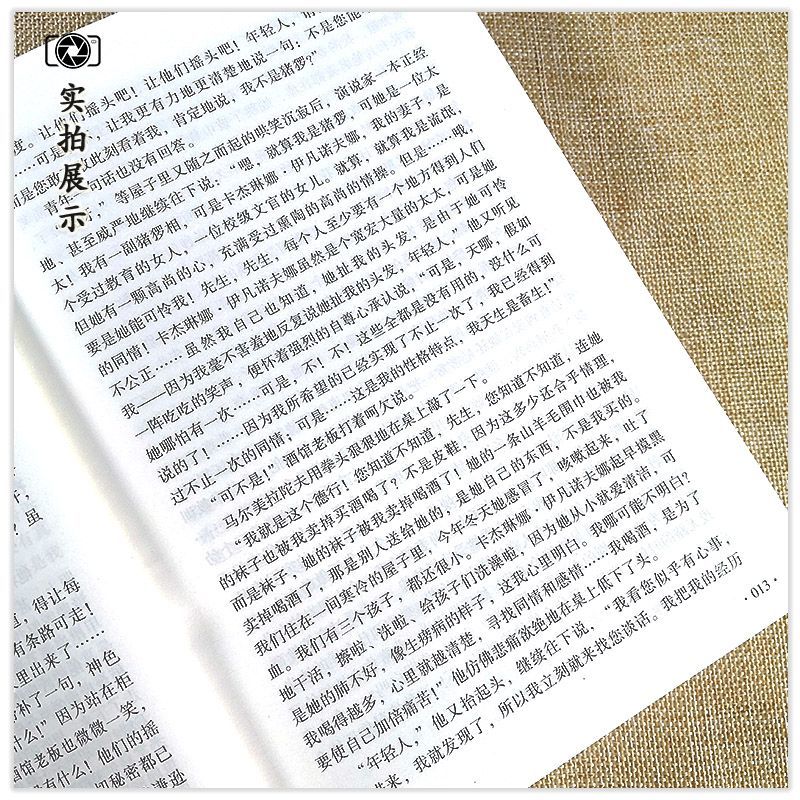 实拍展示
度。让他们摇头吧！让他们摇头吧！年轻人，请
……可是不，让我更有力地更清楚地说一句：不是您能
而是您敢不敢此刻看着我，肯定地说，我不是猪猡？”
青年一句话也没有回答。
等屋子里又随之而起的哄笑沉寂后，演说家一本正经
地、甚至威严地继续往下说：“嗯，就算我是猪猡，可她是一位太
太！我有一副猪猡相，可是卡杰琳娜·伊凡诺夫娜，我的妻子，是
个受过教育的女人，一位校级文官的女儿。就算，就算我是流氓，
但她有一颗高尚的心，充满受过熏陶的高尚的情操。但是……哦，
要是她能可怜我！先生，先生，每个人至少要有一个地方得到人们
的同情！卡杰琳娜·伊凡诺夫娜虽然是个宽宏大量的太太，可是她
不公正……虽然我自己也知道，她扯我的头发，是由于她可怜
我——因为我毫不害羞地反复说她扯我的头发，年轻人，”他又听见
一阵吃吃的笑声，便怀着强烈的自尊心承认说，“可是，天哪，假如
她哪怕有一次……可是，不！不！这些全都是没有用的，没什么可
说的了！……因为我所希望的已经实现了不止一次了，我已经得到
过不止一次的同情；可是……这是我的性格特点，我天生是畜生！”
“可不是！”酒馆老板打着呵欠说。
马尔美拉陀夫用拳头狠狠地在桌上敲了一下。
“我就是这个德行！您知道不知道，先生，您知道不知道，连她
的袜子也被我卖掉买酒喝了？不是皮鞋，因为这多少还合乎情理，
而是袜子，她的袜子被我卖掉喝酒了！她的一条山羊毛围巾也被我
卖掉喝酒了，那是别人送给她的，是她自己的东西，不是我买的。
我们住在一间寒冷的屋子里，今年冬天她感冒了，咳嗽起来，吐了
血。我们有三个孩子，都还很小。卡杰琳娜·伊凡诺夫娜起早摸黑
地干活，擦啦、洗啦、给孩子们洗澡啦，因为她从小就爱清洁，可
是她的肺不好，像生痨病的样子，这我心里明白。我哪可能不明白？
我喝得越多，心里就越清楚，寻找同情和感情……我喝酒，是为了
要使自己加倍痛苦！”他仿佛悲痛欲绝地在桌上低下了头。
“年轻人，”他又抬起头，继续往下说，“我看您似乎有心事，
进来，我就发现了，所以我立刻就来找您谈话。我把我的经历
·013·
？虽
道，得让每
有条路可走！
里出来了……
补了一句，神色
什么！”因为站在柜
酒馆老板也微微一笑，
有什么！他们的摇
切秘密都已